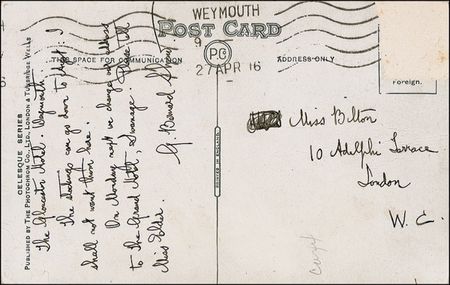 WEYMOUTH
9
27 APR 16
POST CARD
PC
THIS SPACE FOR COMMUNICATION
ADDRESS ONLY
Foreign.
CELESQUE SERIES
PUBLISHED BY THE PHOTOCHROM CO., LTD., LONDON & TUNBRIDGE WELLS
The Gloucester Hotel. Weymouth.
The can go down to Ayot. I
shall not want them here.
On Monday next we change our address
to the Grand Hotel, Swanage. Please tell
Miss Elder.
G. Bernard Shaw
Miss Bilton
10 Adelphi Terrace
London
W. C.